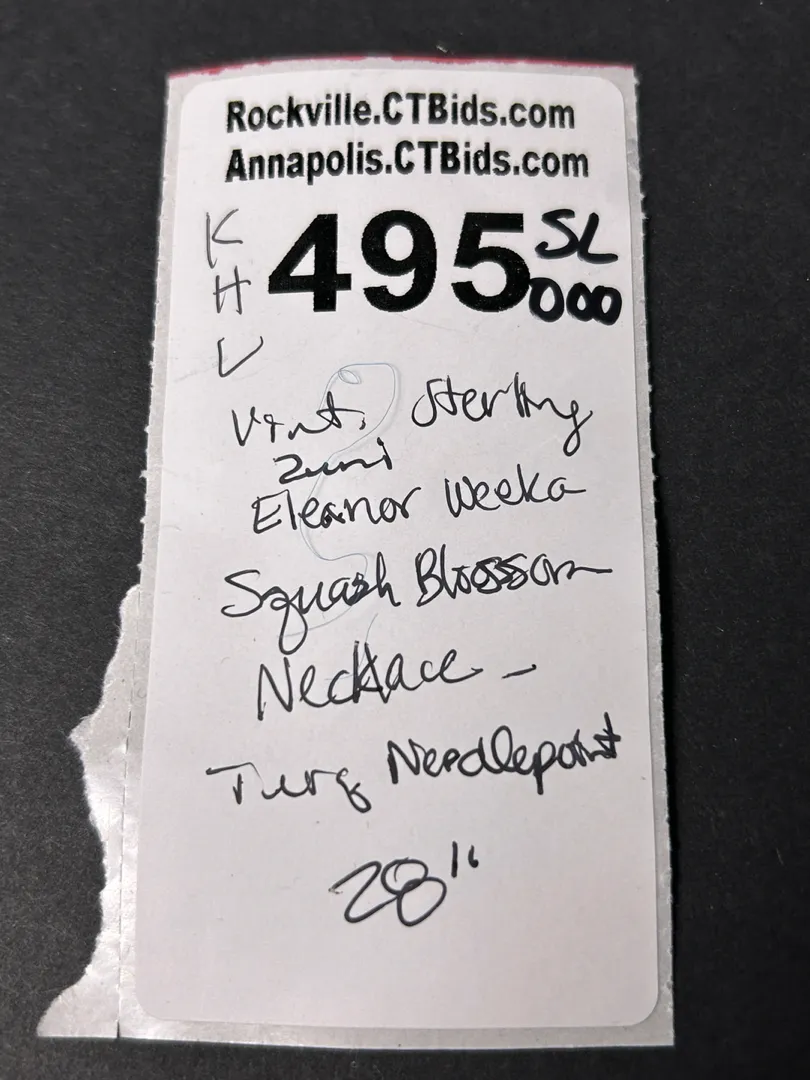 Rockville.CTBids.com
Annapolis.CTBids.com
K
H
V
495
SL
000
Vint. Sterling
Zuni
Eleanor Weeka
Squash Blossom
Necklace -
Turq Needlepoint
28"